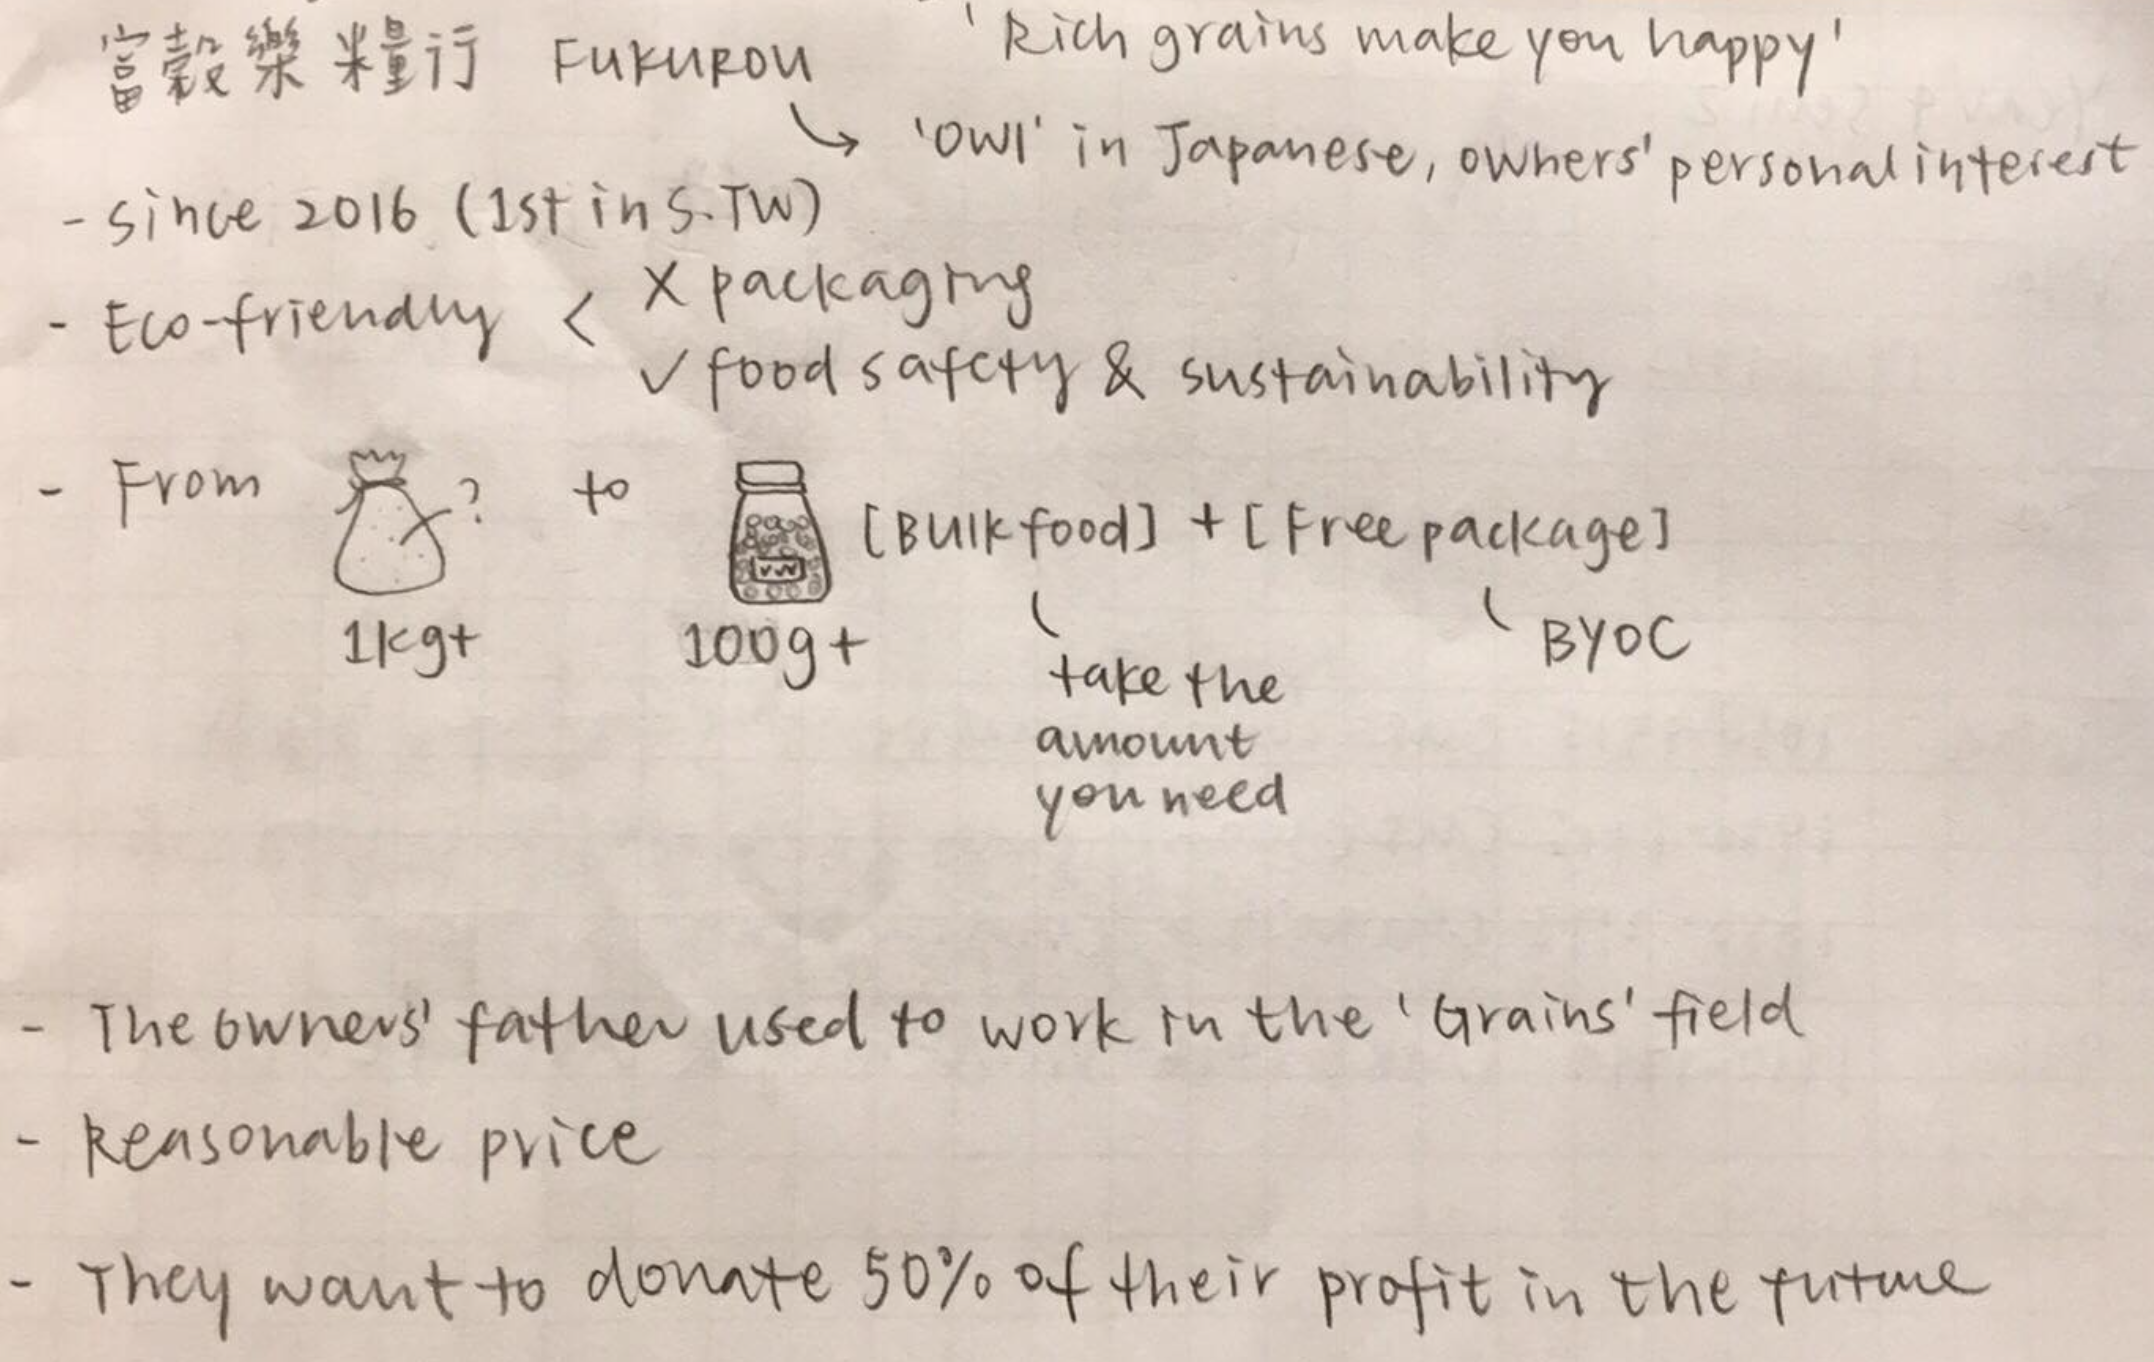 富穀樂糧行 FUKUROU 'Rich grains make you happy'
'Owl' in Japanese, owners' personal interest
- since 2016 (1st in S.TW)
- Eco-friendly < X packaging
✓ food safety & sustainability
- From ? to [Bulk food] + [Free package]
1kg+ 100g+ BYOC
take the
amount
you need
- The owners' father used to work in the 'Grains' field
- Reasonable price
- They want to donate 50% of their profit in the future